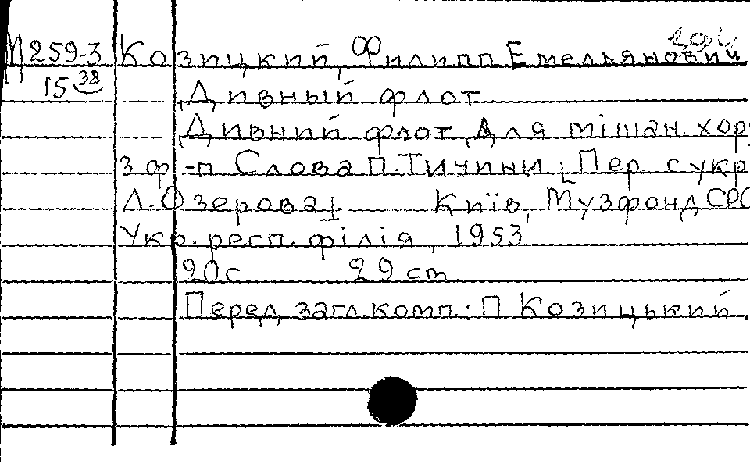 М 259-3 Козицкий, Филипп Емельянович
15 38 Дивный флот
Дивний флот, Для мішан. хору
з ф-п Слова П. Тичини; [Пер с укр
Л. Озерова] Київ, Музфонд СРС
Укр. респ. філія, 1953
20 с 29 cm
Перед загл. комп.: П Козицький.